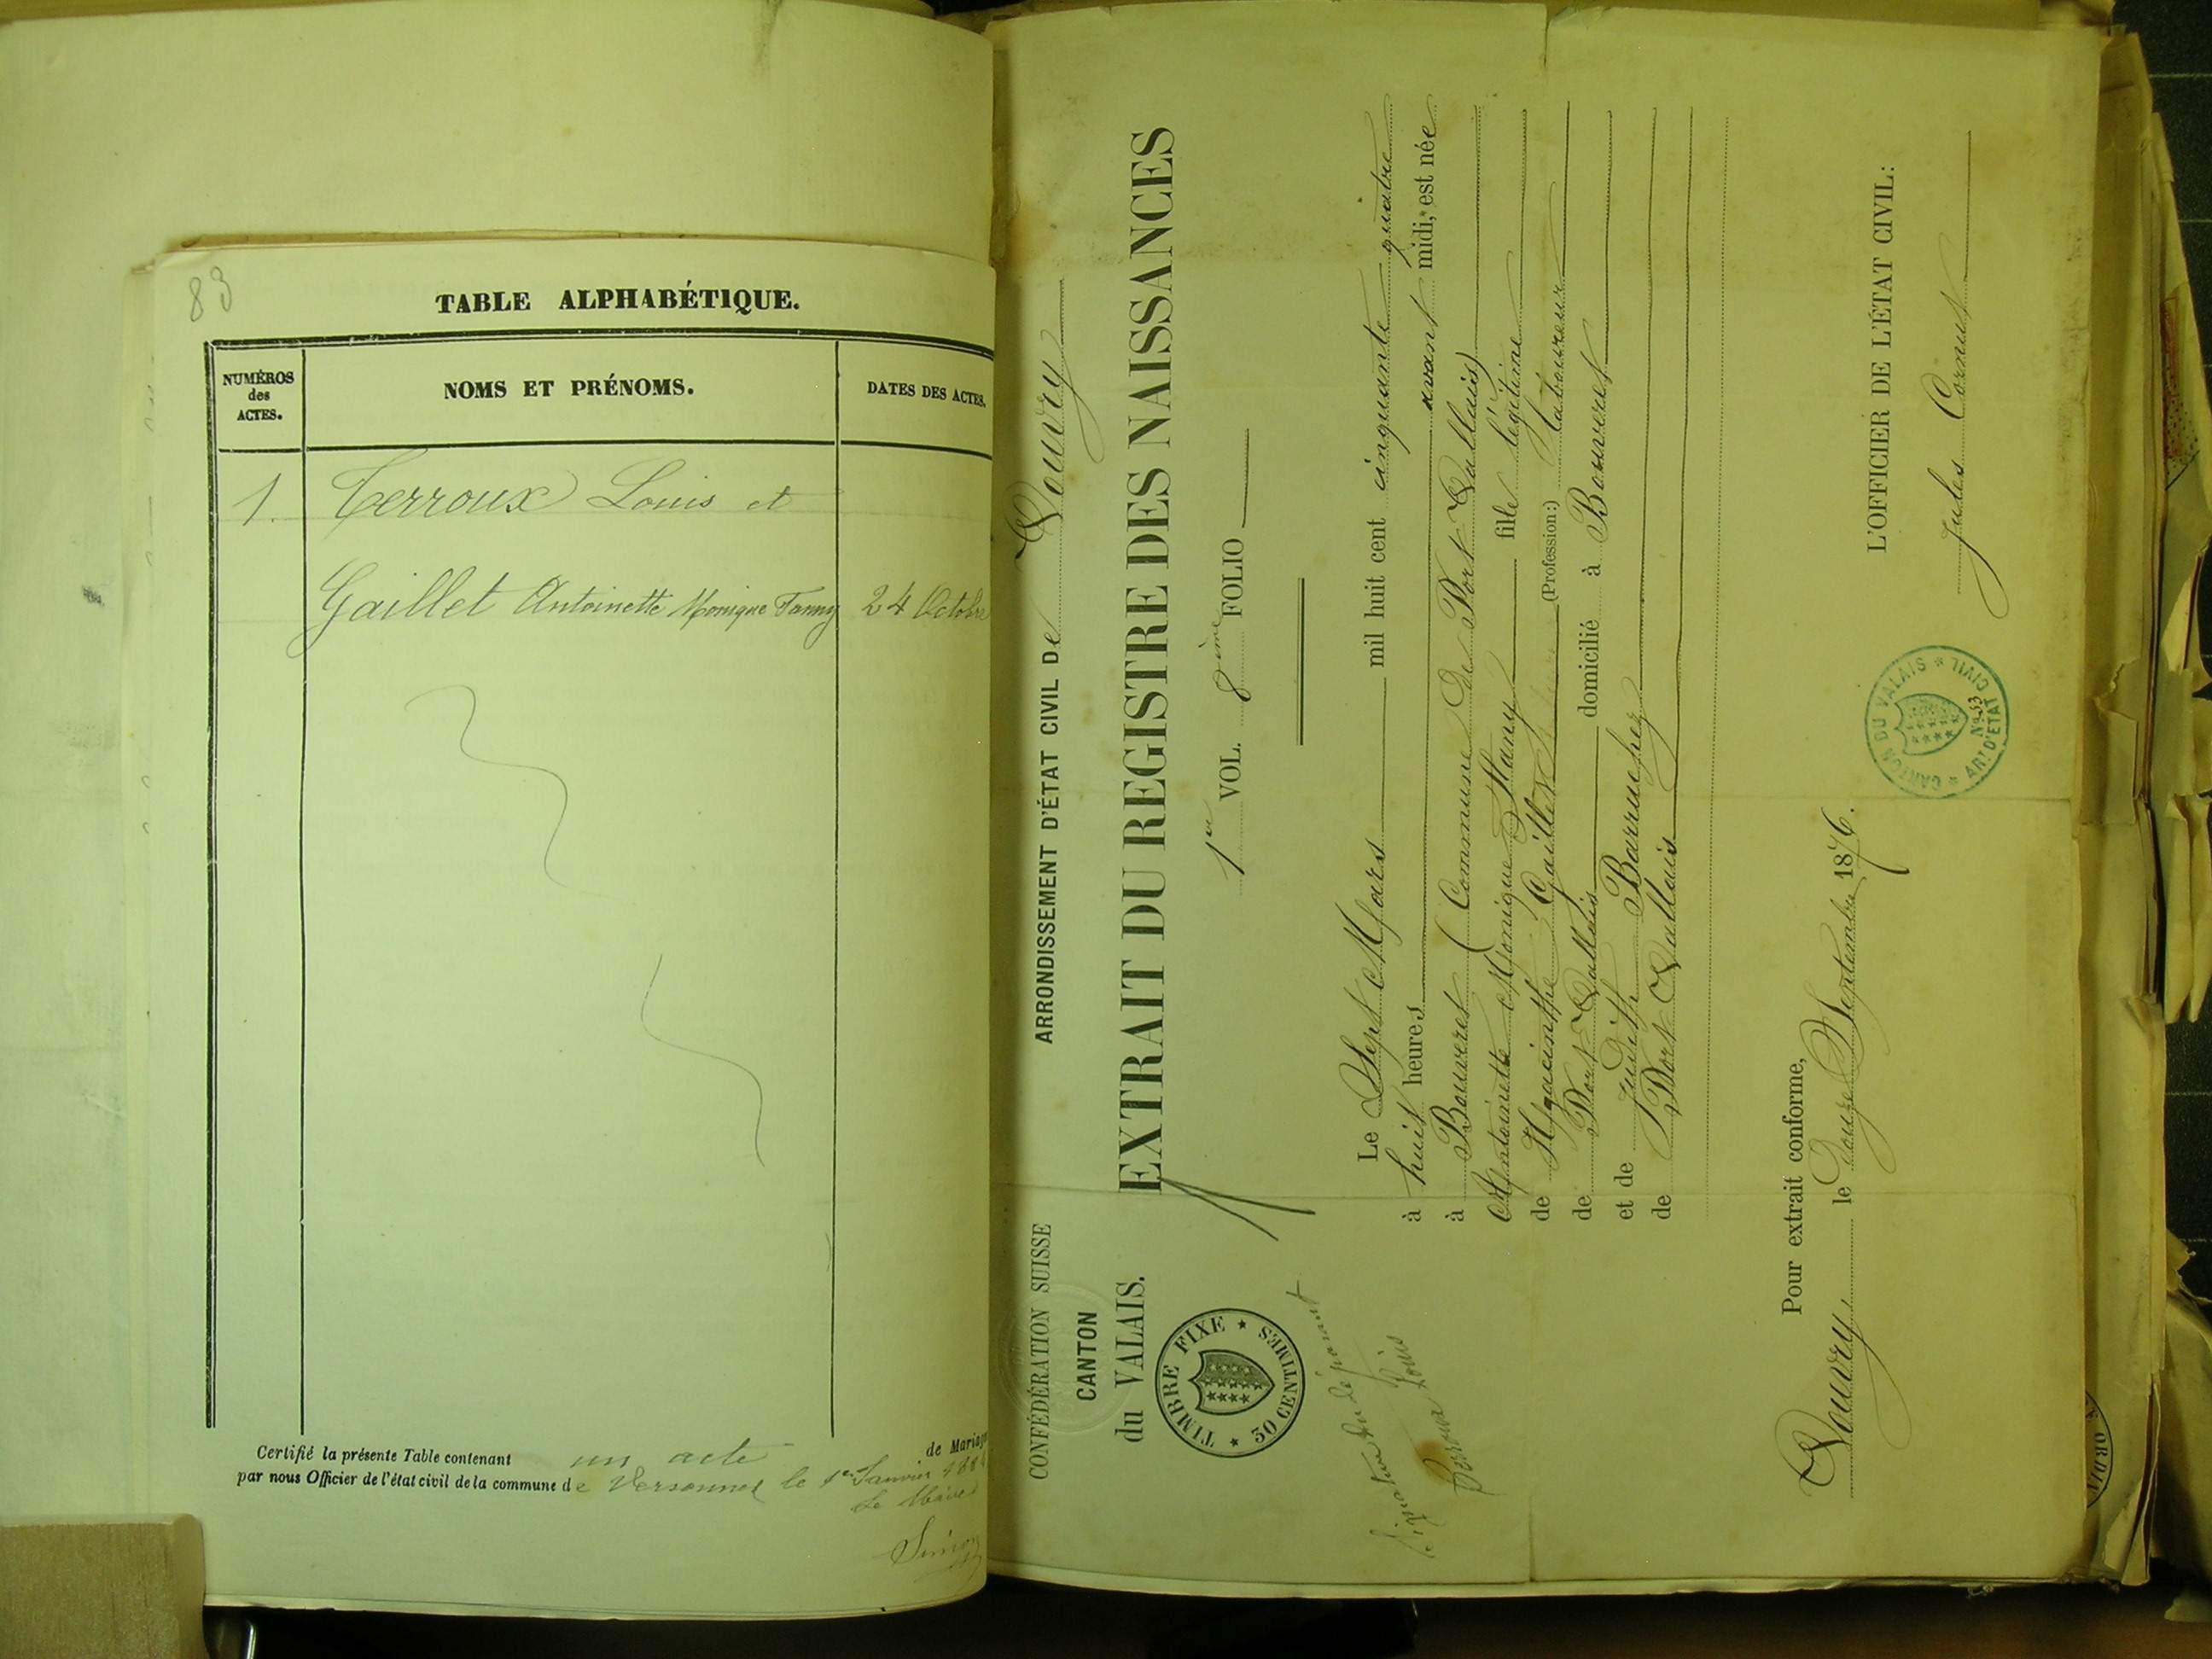 83
TABLE ALPHABÉTIQUE.
NUMÉROS
des
ACTES.
NOMS ET PRÉNOMS.
DATES DES ACTES.
1. Terroux Louis et
Gaillet Antoinette Monique Fanny 24 Octobre
Certifié la présente Table contenant un acte de Mariage
par nous Officier de l'état civil de la commune de Versonnex le 1er Janvier 188
Le Maire
CONFÉDÉRATION SUISSE
CANTON
du VALAIS.
TIMBRE FIXE
30 CENTIMES
ARRONDISSEMENT D'ÉTAT CIVIL De Vouvry
EXTRAIT DU REGISTRE DES NAISSANCES
1er VOL. 8ème FOLIO
Le Sept Mars mil huit cent cinquante quatre
à huit heures avant midi, est née
à Bouveret (Commune de Port Vallais)
Antoinette Monique Fany fille légitime
de Hyacinthe Gaillet (Profession:) laboureur
de Port Vallais domicilié à Bouveret
et de Judith Barruchez
de Port Vallais
Signature du déposant
Terroux Louis
Pour extrait conforme,
Vouvry le Douze Septembre 1876.
L'OFFICIER DE L'ÉTAT CIVIL:
Jules Cornut
CANTON DU VALAIS
ARt D'ÉTAT CIVIL
No 33